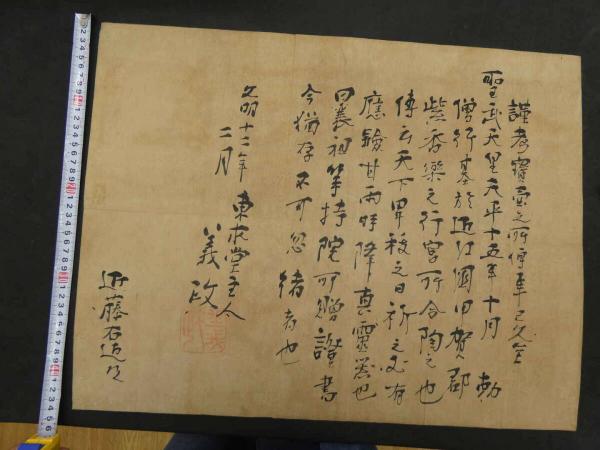 謹考寶壺之所傳
聖武天皇天平十五年十月 勅
僧行基於近江國甲賀郡
紫香樂之行宮所令陶之也
傳云天下旱之日祈之必有
應驗甘雨時降真靈器也
曰義祖等持院所贈譜書
今猶存不可忽緒者也
文明十二年 東求堂主人
二月 義政
近藤右近